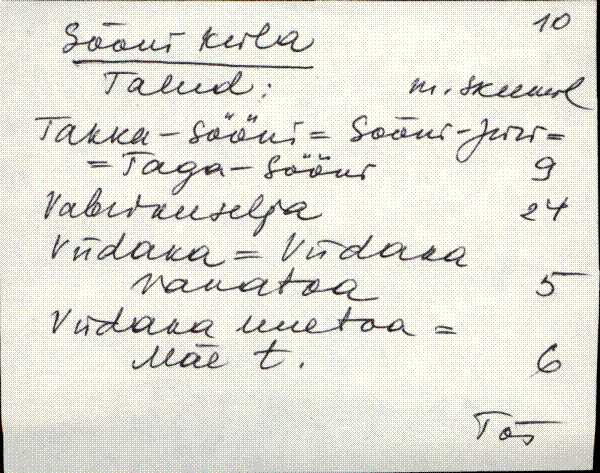 10
Sööni küla
Talud:
Takka-Sööni = Sööni-Jüri =
= Taga-Sööni 9
Vabrikuselja 24
Viidaka = Viidaka
vanatoa 5
Viidaka uuetoa =
Mäe t. 6
Tõs